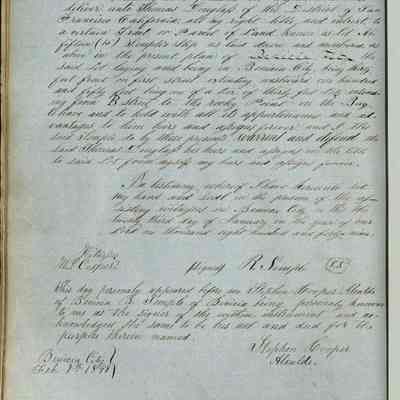 deliver unto Thomas Douglass of the District of San
Francisco California, all my right title, and interest to
a certain Tract or Parcel of Land known as Lot No
fifteen (15) Semple's slip as laid down and numbered as
above in the present plan of Benicia City, the
said Lot laying and being in Benicia City being thirty
feet front on first street extending westward one hundred
and fifty feet being one of a tier of thirty feet lots extend-
ing from B street to the rocky Point on the Bay.
To have and to hold with all its appurtenances and ad-
vantages to him heirs and assigns forever and I the
said Semple do by these presents warrant and defend the
said Thomas Douglass his heirs and assigns in the title
to said Lot from myself my heirs and assigns forever.
In testimony, whereof I have hereunto set
my hand and seal in the presence of the sub-
scribing witnesses in Benicia City on this the
twenty third day of January in the year of our
Lord one thousand eight hundred and forty-nine.
Witness
W. Cooper
Signed R. Semple L.S.
This day personally appeared before me Stephen Cooper Alcalde
of Benicia R. Semple of Benicia being personally known
to me as the signer of the within instrument and ac-
knowledged the same to be his act and deed for the
purposes therein named.
Stephen Cooper
Alcalde.
Benicia City
Feb. 7th 1849